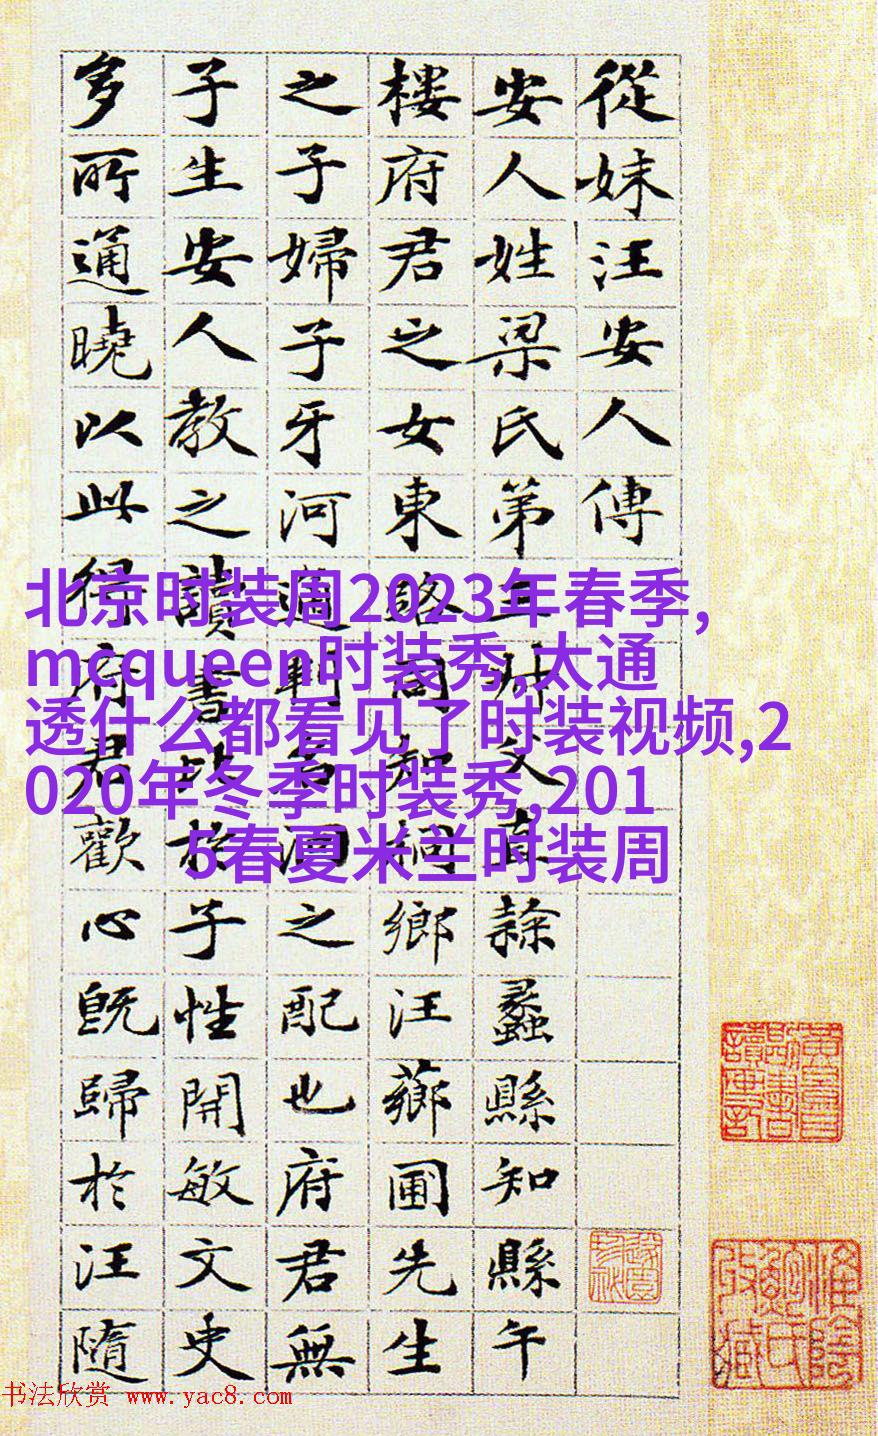 從妹汪安人傳
安人姓梁氏第三叔父直隸蠡縣知縣午
樓府君之女東路同知祠鄉汪薌圃先生
之子婦子牙河通判名洄之配也府君無
子生安人教之讀書比於子性開敏文史
多所通曉以此得府君歡心旣歸於汪隨
北京时装周2023年春季,
mcqueen时装秀,太通
透什么都看见了时装视频,2
020年冬季时装秀,201
5春夏米兰时装周
书法欣赏 www.yac8.com